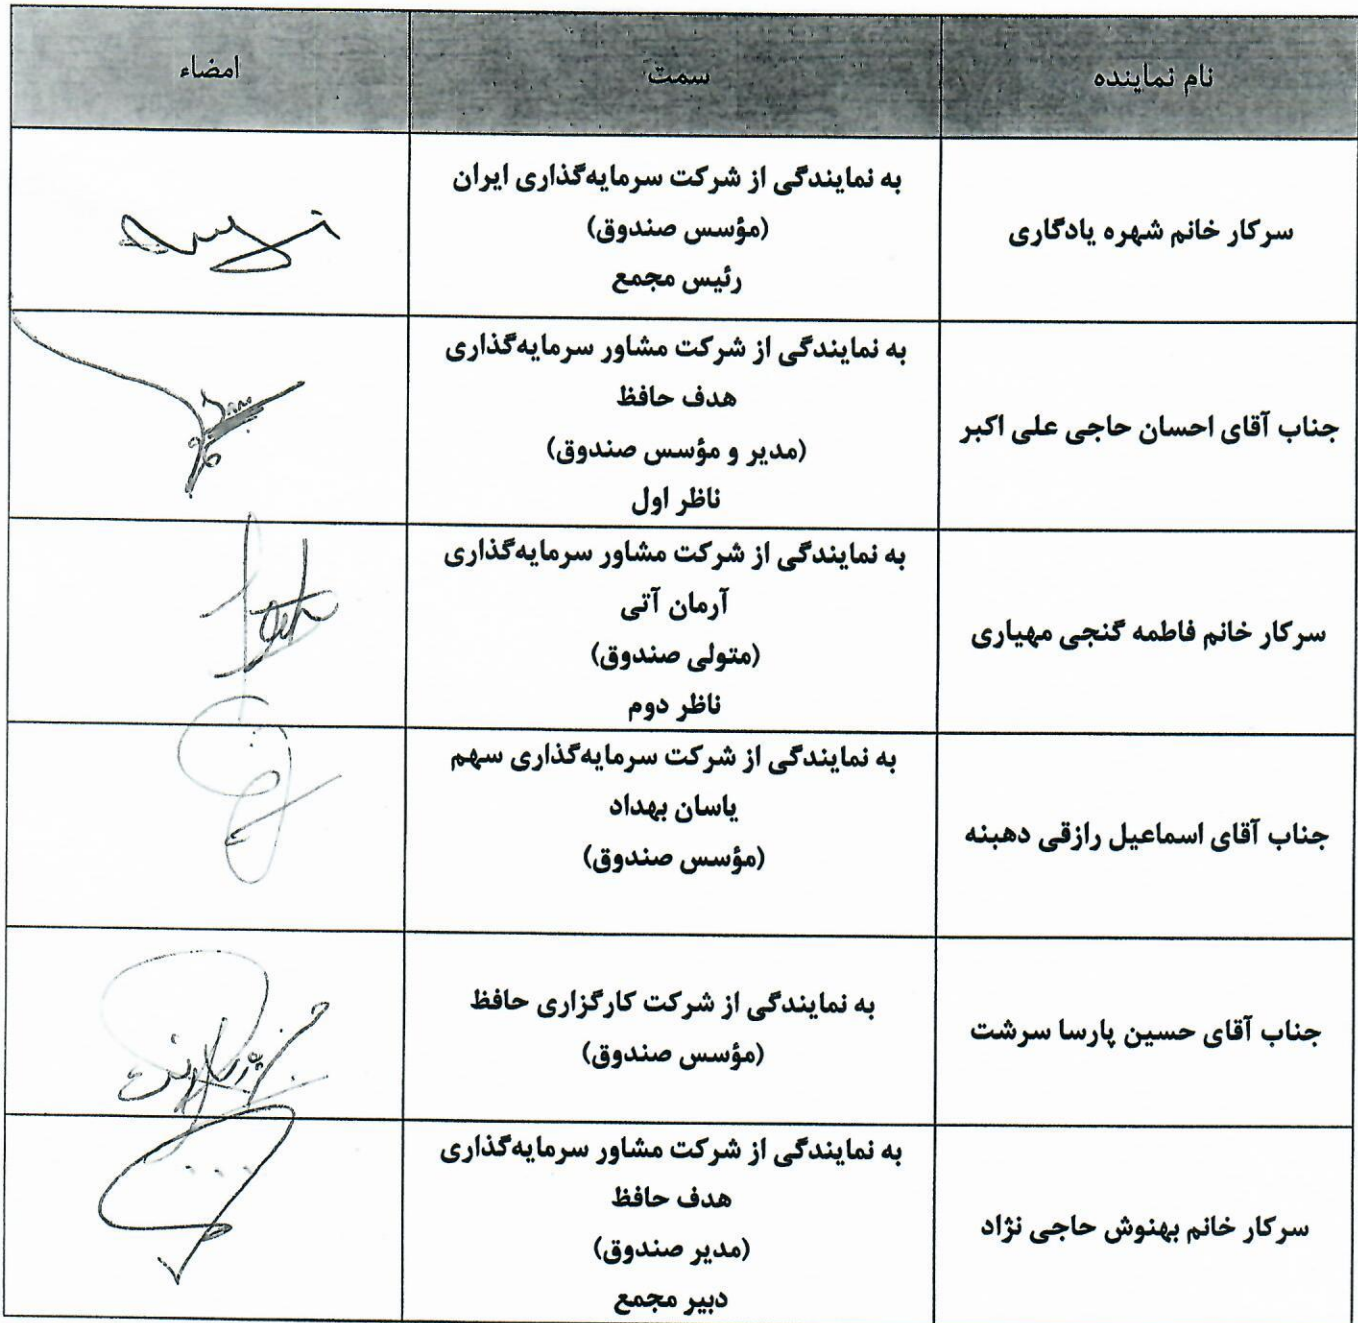 نام نماینده
سمت
امضاء
سرکار خانم شهره یادگاری
به نمایندگی از شرکت سرمایه‌گذاری ایران
(مؤسس صندوق)
رئیس مجمع
جناب آقای احسان حاجی علی اکبر
به نمایندگی از شرکت مشاور سرمایه‌گذاری
هدف حافظ
(مدیر و مؤسس صندوق)
ناظر اول
سرکار خانم فاطمه گنجی مهیاری
به نمایندگی از شرکت مشاور سرمایه‌گذاری
آرمان آتی
(متولی صندوق)
ناظر دوم
جناب آقای اسماعیل رازقی دهبنه
به نمایندگی از شرکت سرمایه‌گذاری سهم
یاسان بهداد
(مؤسس صندوق)
جناب آقای حسین پارسا سرشت
به نمایندگی از شرکت کارگزاری حافظ
(مؤسس صندوق)
سرکار خانم بهنوش حاجی نژاد
به نمایندگی از شرکت مشاور سرمایه‌گذاری
هدف حافظ
(مدیر صندوق)
دبیر مجمع